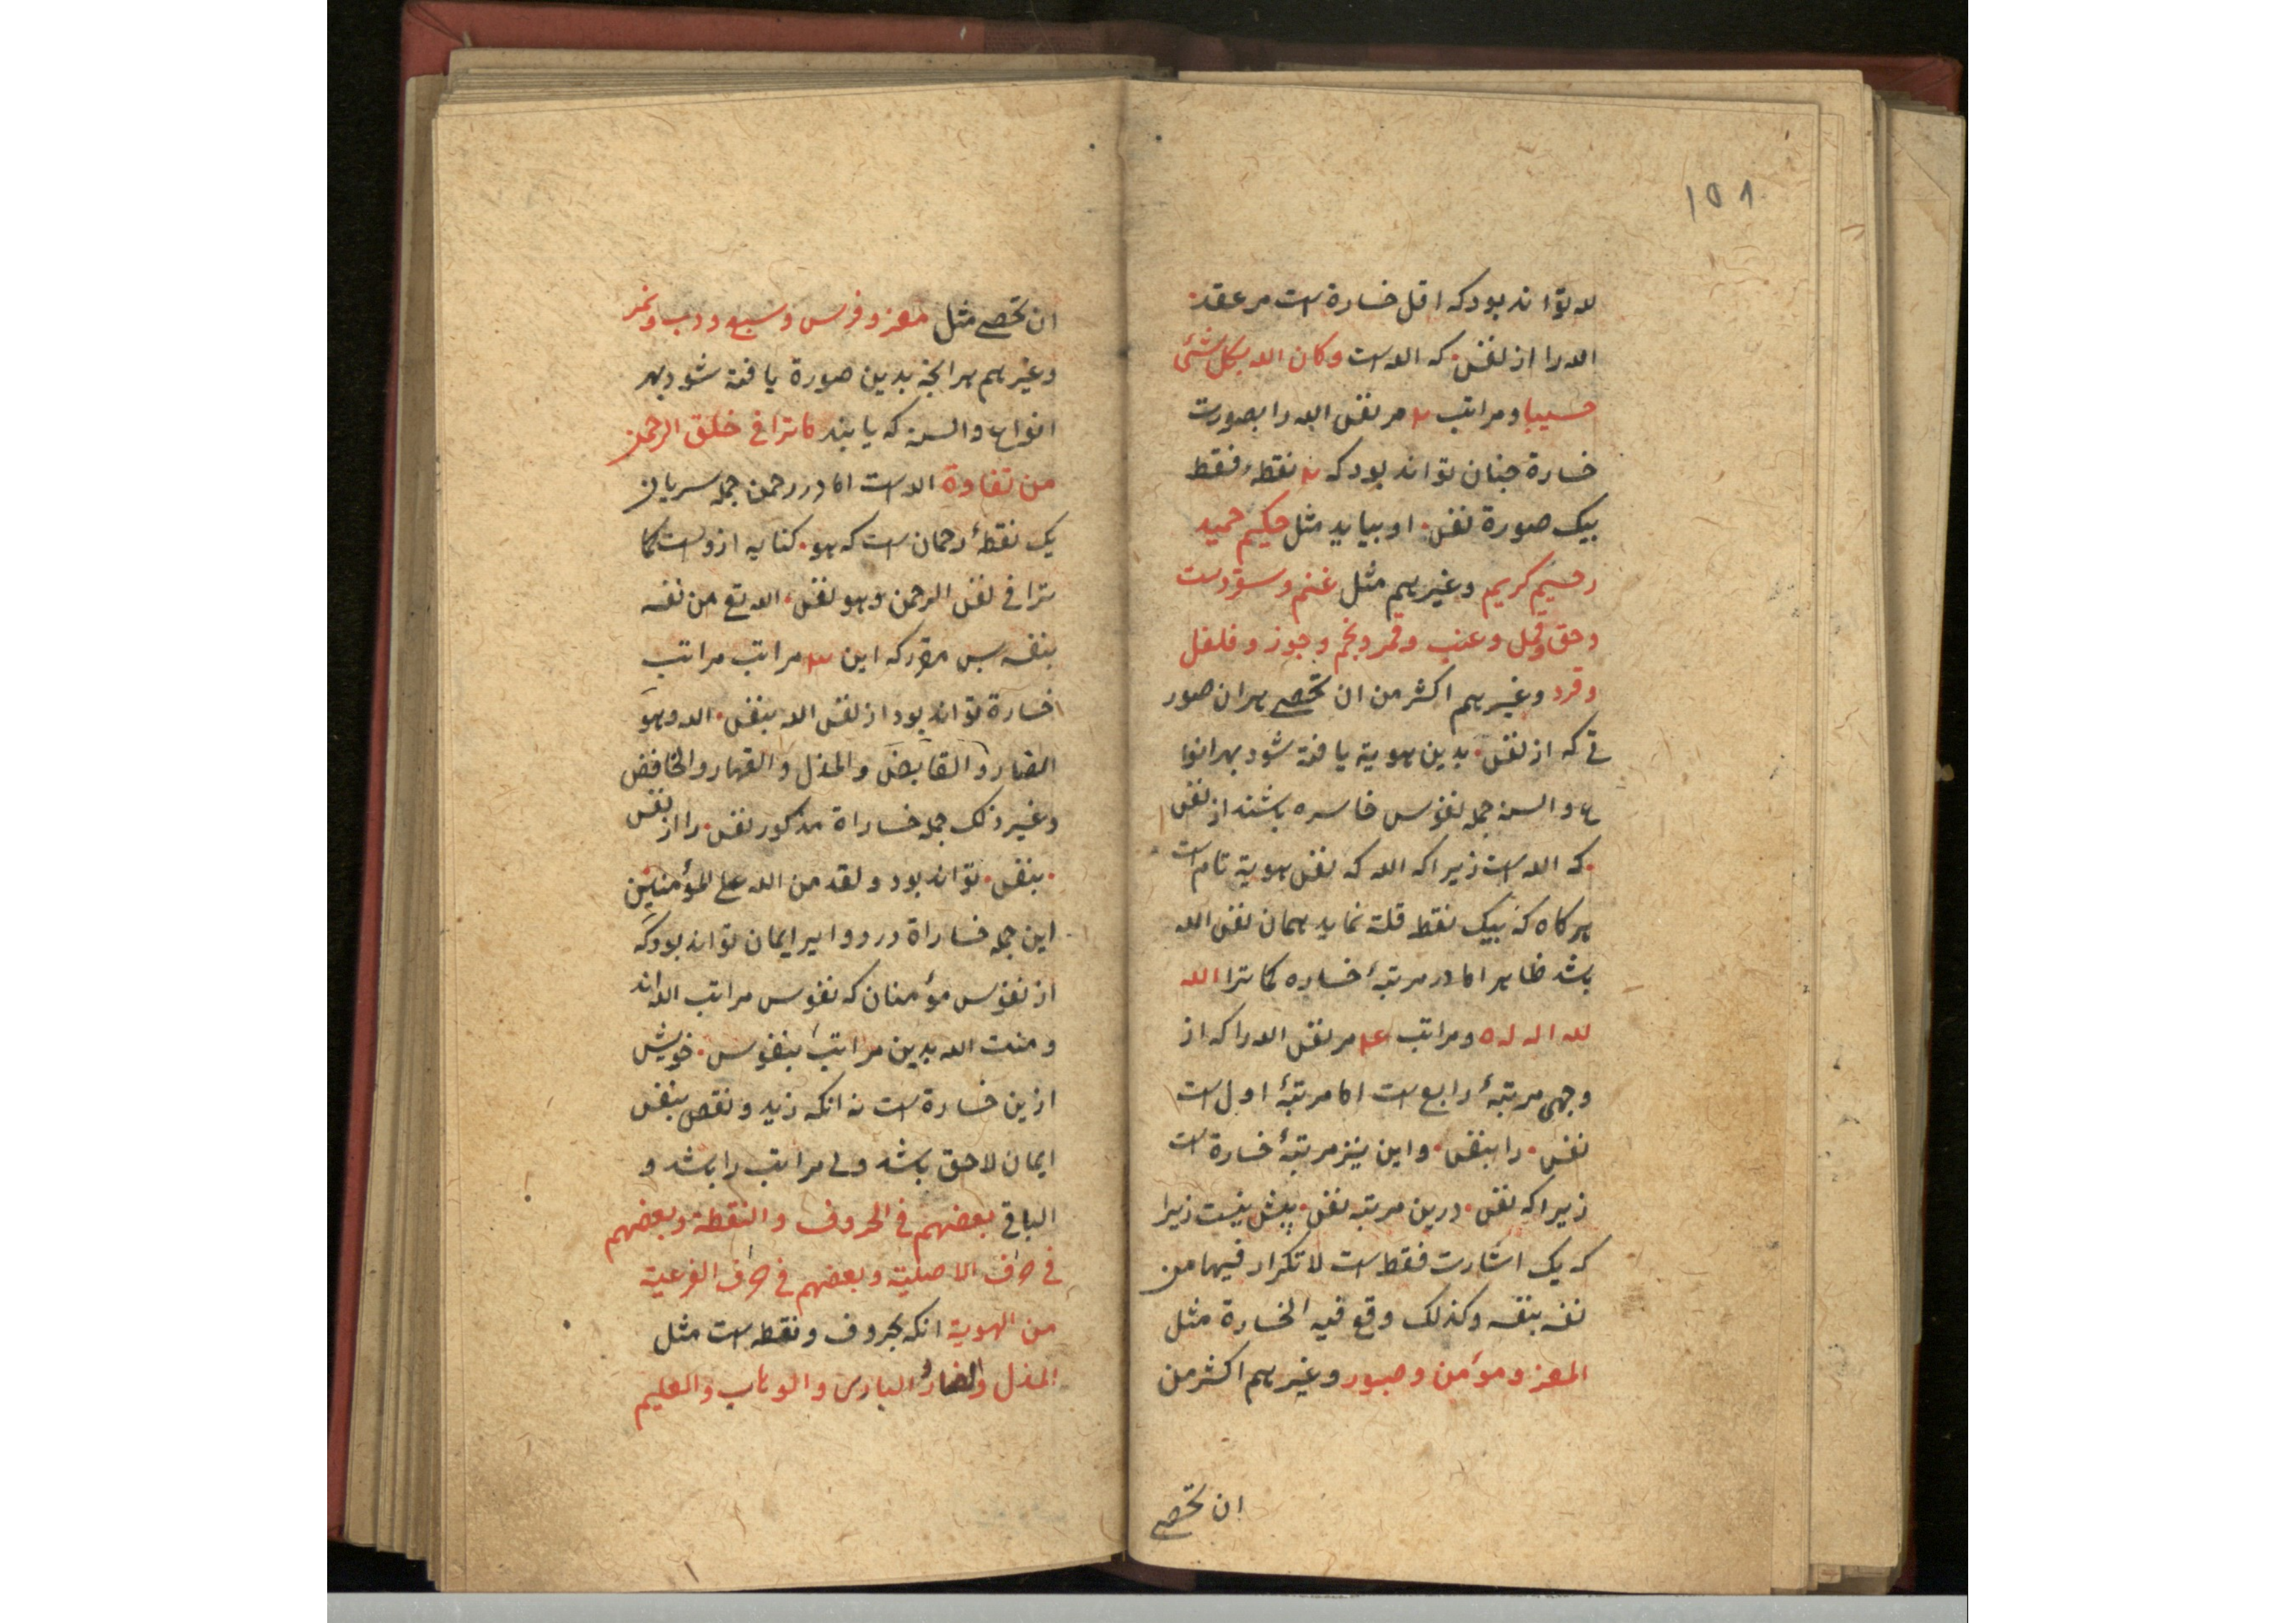 ١٥٨
لا تواند بود که اقل خسارة است مر عقد
الله را از نفس۰ که الله است وکان الله بکل شئی
حسیبا و مراتب مر نفس الله را بصورت
خسارة چنان تواند بود که نقطه فقط
بیک صورة نفس۰ او بیاید مثل حکیم حمید
رحیم کریم و غیرهم مثل غنم و
و حق و قمل و عنب و قمر و نجم و جوز و فلفل
و قرد و غیرهم اکثر من ان تحصی هر ان صور
تی که از نفس۰ بدین هویة یافته شود بهر انوا
ع و السنه جمله نفوس خاسره باشند از نفس
۰ که الله است زیرا که الله که نفس هویة تام است
هر کاه که بیک نقطه قلة نماید همان نفس الله
باشد ظاهر اما در مرتبهٔ خساره کما ترا الله
لله اله له ه و مراتب مر نفس الله را که از
وجهی مرتبهٔ رابع است اما مرتبهٔ اول است
نفس۰ را بنفس۰ و این نیز مرتبهٔ خسارة است
زیرا که نفس۰ درین مرتبه نفس۰ پیش نیست زیرا
که یک اشارت فقط است لا تکرار فیها من
نفسه بنفسه وکذلک وقع فیه الخسارة مثل
المعز و مؤمن و صبور و غیرهم اکثر من
ان تحصی
ان تحصی مثل معز و فرس و سبع و دب و نمر
و غیرهم هر انچه بدین صورة یافته شود بهر
انواع و السنه که یابند ما ترا فی خلق الرحمن
من تفاوة الله است اما در رحمن جمله سریان
یک نقطهٔ رحمان است که هو۰ کنایه ازوست کما
ترا فی نفس الرحمن و هو نفس۰ الله تع من نفسه
بنفسه پس مقرر که این مراتب مراتب
خسارة تواند بود از نفس الله بنفس۰ الله و هو
الضار و القابض و المذل و القهار و الخافض
و غیر ذلک جمله خساراة مذکور نفس۰ را از نفس
۰ بنفس۰ تواند بود و لقد من الله علی المؤمنین
این جمله خساراة در دوایر ایمان تواند بود که
از نفوس مؤمنان که نفوس مراتب الله اند
و منت الله بدین مراتب بنفوس۰ خویش
ازین خسارة است نه انکه زید و نقص بنفس
ایمان لاحق باشد ولی مراتب را باشد و
الباقی بعضهم فی الحروف و النقطة و بعضهم
فی حرف الاصلیة و بعضهم فی حرف الفرعیة
من الهویة انکه بحروف و نقطه است مثل
المذل و الضار و الباری و الوهاب و العلیم